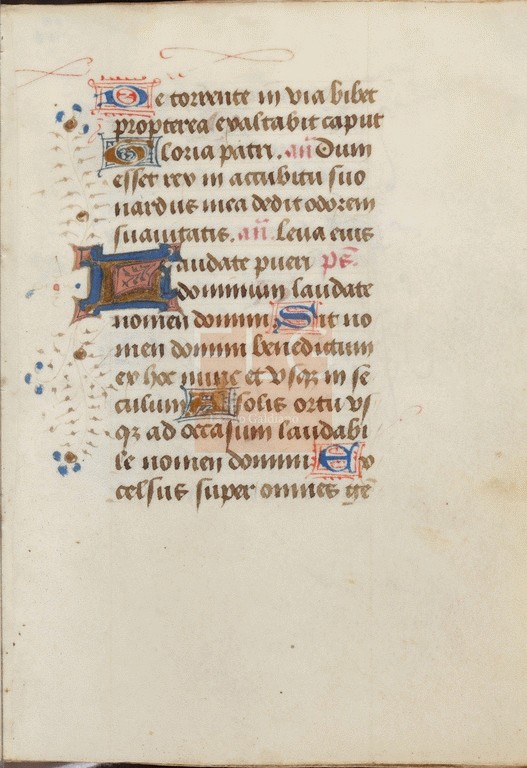 De torrente in via bibet
propterea exaltabit caput
Gloria patri. añ Dum
esset rex in accubitu suo
nardus mea dedit odorem
suavitatis. añ. Leva eius
Laudate pueri ps̄.
dominum laudate
nomen domini Sit no
men domini benedictum
ex hoc nunc et usqȝ in se
culum A solis ortu us
qȝ ad occasum laudabi
le nomen domini Ex
celsus super omnes gē